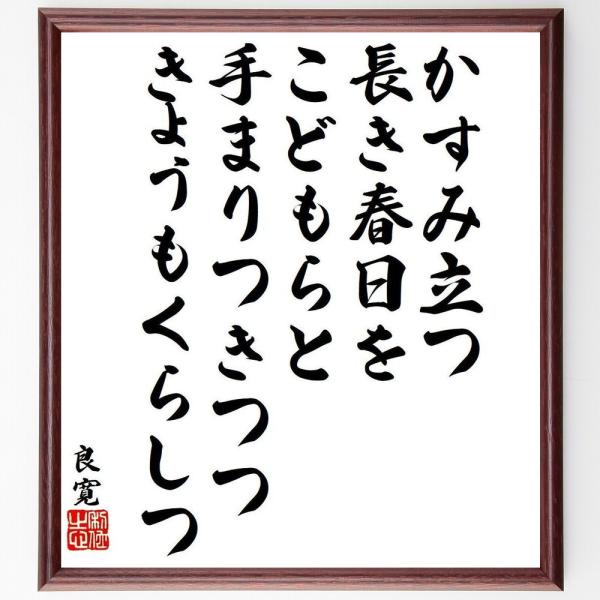 かすみ立つ
長き春日を
こどもらと
手まりつきつつ
きようもくらしつ
良寛